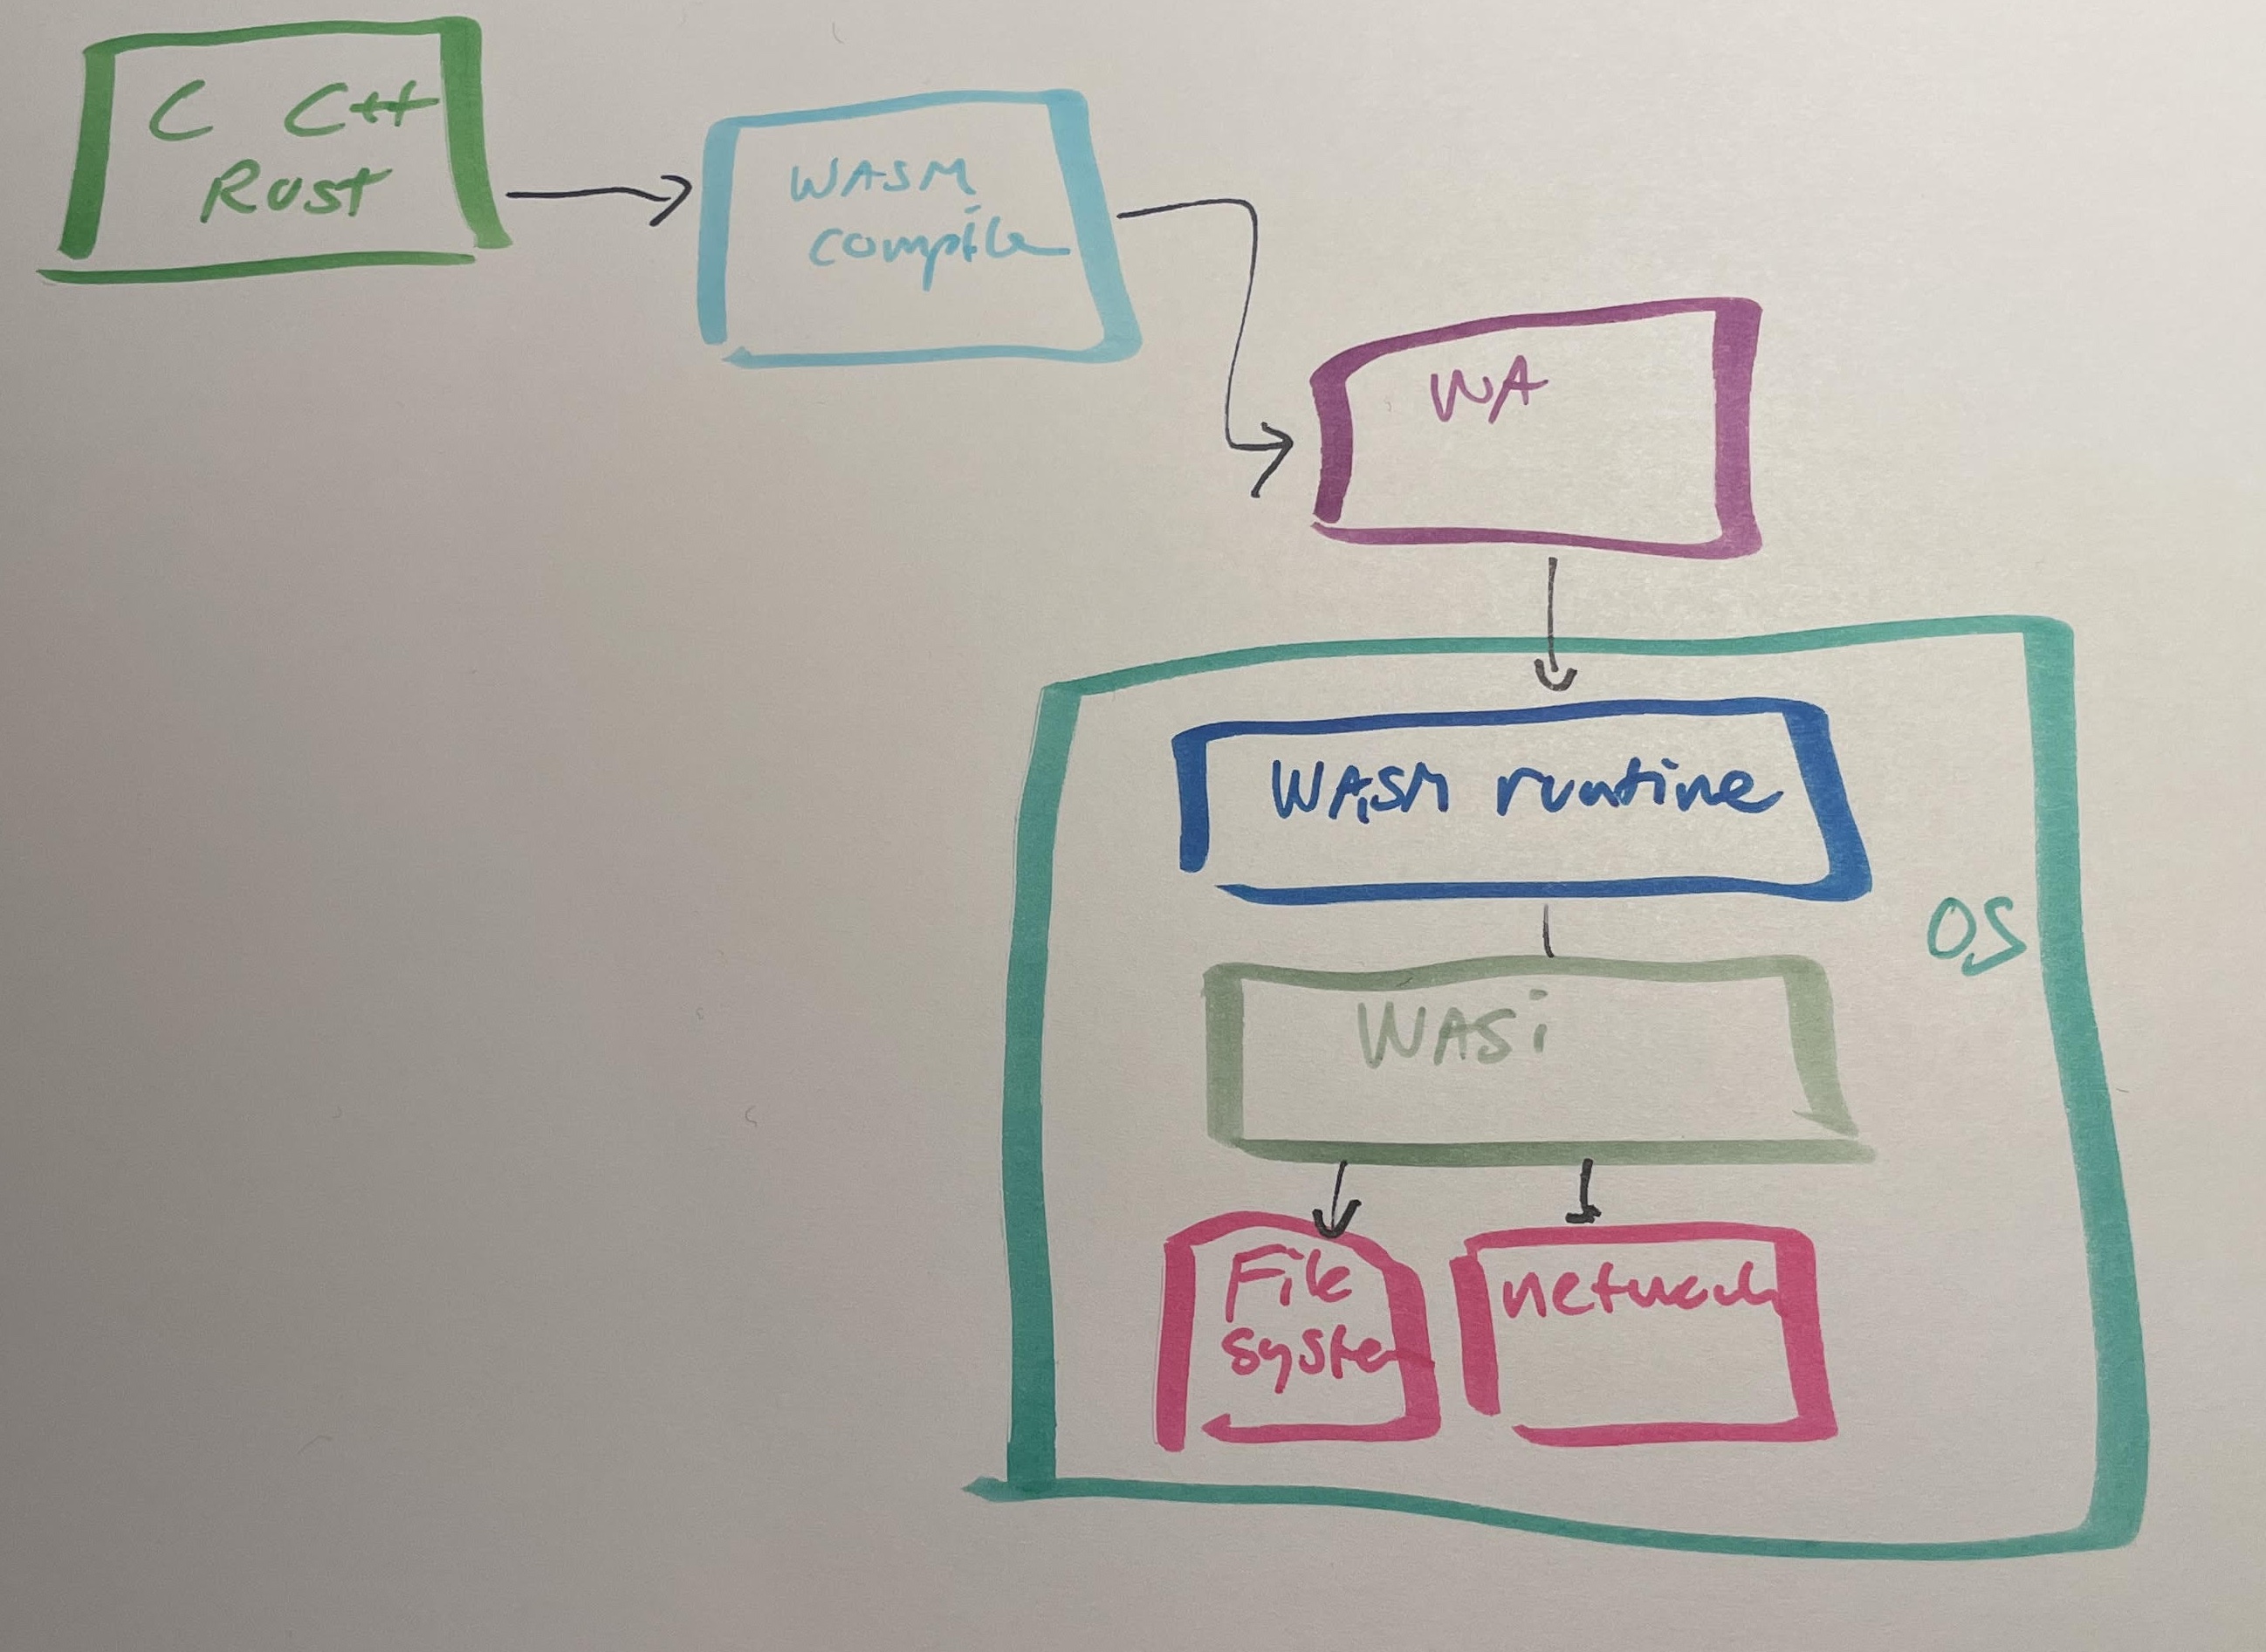 C C++
Rust
WASM
compile
WA
WASM runtime
OS
WASi
File
system
network